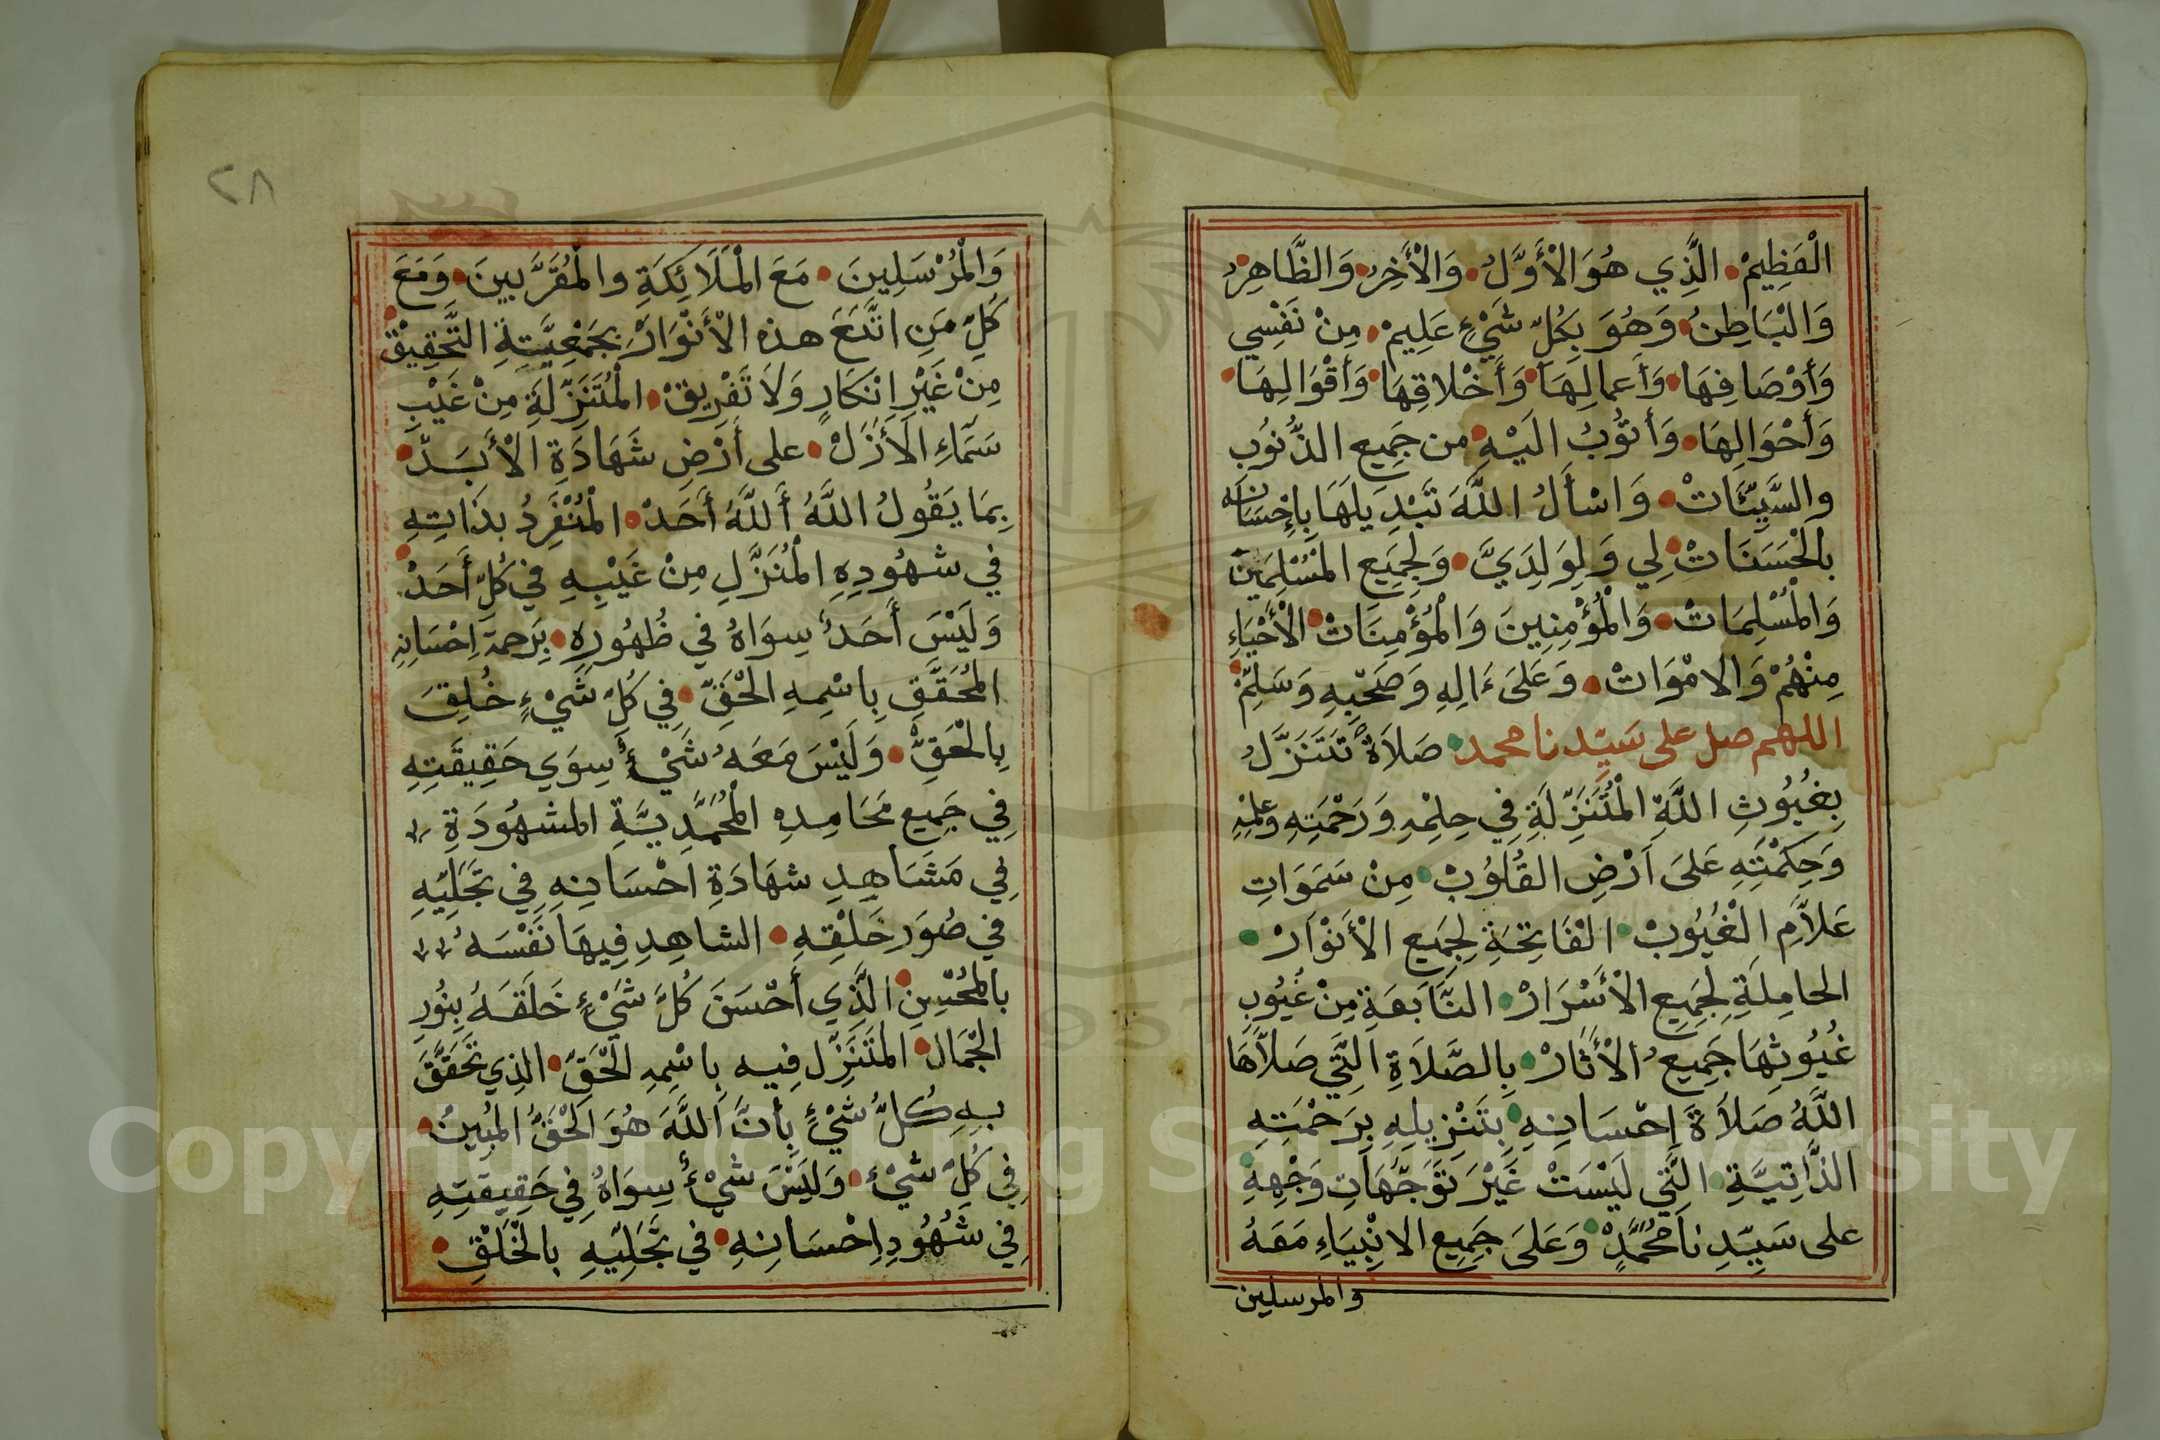 الْعَظِيمْ • الَّذِي هُوَ الْأَوَّلُ • وَالْأَخِرُ • وَالظَّاهِرُ •
وَالْبَاطِنُ • وَهُوَ بِكُلِّ شَيْءٍ عَلِيمْ • مِنْ نَفْسِي
وَأَوْصَافِهَا • وَأَعمالِهَا • وَأَخْلاقِهَا • وَأَقْوَالِهَا •
وَأَحْوَالِهَا • وَأَتُوبُ الَيْهِ • من جَمِيعِ الذُّنُوبِ
والسَّيِّئَاتْ • وَاسْأَلُ اللَّهَ تَبْدِيلَهَا بِإِحْسَانِهِ
بالْحَسَنَاتْ • لِي وَلِوَلِدَيَّ • وَلِجَمِيعِ الْمُسْلِمَينَ
وَالْمُسْلِمَاتْ • وَالْمُؤْمِنِينَ وَالْمُؤْمِنَاتْ • الْأَحْيَاءِ
مِنْهُمْ وَالامْوَاتْ • وَعَلَى ءَالِهِ وَصَحْبِهِ وَسَلِّمْ •
اللهم صل على سَيّدنا محمد • صَلاَةً تَتَنَزَّلُ
بِغُيُوثِ اللَّهِ الْمُتَنَزِّلَةِ فِي حِلِمْهِ وَرَحْمَتِهِ وَعِلمْهِ
وَحِكَمْتِهِ عَلَى اَرْضِ القُلُوُبْ • مِنْ سَمَوَاتِ
عَلاَّمِ الْغُيُوبْ • الْفَاتِحَةِ لِجَمِيعِ الْأَنْوَارْ •
الحامِلَةِ لِجَمِيعِ الْأَسْرَارْ • النَّابَعَةِ مِنْ غُيُوبِ
غُيُوثِهَا جَمِيعُ الْأَثَارْ • بِالصَّلاَةِ الَّتِي صَلاَّهَا
اللَّهُ صَلاَةَ إِحْسَانِهِ • بِتَنْزِيلِهِ بِرَحْمَتِهِ
الذَّاتِيَّةِ • الَّتِي لَيْسَتْ غَيْرَ تَوَجُّهَاتِ وَجْهِهِ •
على سَيِّدِ نَا مُحَمَّدٍ • وَعَلَى جَمِيعِ الانْبِيَاءِ مَعَهُ
والمرسلين
٢٨
وَالْمُرْسَلِينَ • مَعَ الْمَلَائِكَةِ والْمُقَرَّبينَ • وَمَعَ
كُلِّ مَنِ اتَّبَعَ هذه الْأَنْوَارَ بجَمْعِيَّتِةِ التَّحْقِيقْ •
مِنْ غَيْرِ انْكَارٍ وَلاَ تَفْرِيقْ • الْمُتَنَزِّلَةِ مِنْ غَيْبِ
سَمَآءِ الْأَزَلْ • على أَرْضِ شَهَادَةِ الْأَبَدْ •
بِمَا يَقُولُ اللَّهُ أَللَّهُ أَحَدْ • الْمُنْفَرِدُ بذَاتِهِ
في شهُودِهِ الْمُنَزَّلِ مِنْ غَيْبِهِ في كُلِّ أَحَدْ •
وَلَيْسَ أَحَدٌ سِوَاهُ في ظُهُورِهِ • بِرَحمة اِحْسَانِهِ
المُحَقَّقِ بِاسْمِهِ الْحَقِّ • فِي كُلِّ شَيْءٍ خُلِقَ
بِالْحَقِّ • وَلَيْسَ مَعَهُ شَيْءٌ سِوَي حَقِيقَتِهِ
فِي جَمِيع مَحَامِدِهِ الْمُحَمَّدِيَّةِ المشهُودَةِ
فِي مَشَاهِدِ شهَادَةِ اَحْسَانِهِ فِي تَجَلِّيهِ
في صُوَر خَلْقِهِ • الشاهِدِ فِيهَا نَفْسَهُ
بالمُحْسِنِ • الَّذِي أَحْسَنَ كُلَّ شَيْءٍ خَلَقَهُ بِنُورِ
الْجَمَال • المُتَنَزِّل فيه بِاسْمِهِ الْحَقِّ • الذِي تَحَقَّقَ
بِهِ كُلُّ شَيْءٍ بِأَنَّ اللَّهَ هُوَ الْحَقُّ المُبِينُ •
فِي كُلِّ شَيْءٍ • وَلَيْسَ شيْءٌ سِوَاهُ فِي حَقِيقَتِهِ
فِي شُهُودِ اِحْسَانِهِ • في تَجَلِّيهِ بالْخَلْقِ •
Copyright © King Saud University
1957